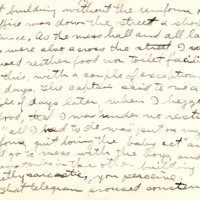 building without the uniform
office was down the street a sho
ance, As the mess hall and all la
were also across the street I
had neither food nor toilet facili
this, with a couple of exception
days. The captain said to me a
le of days later, when I begge
food, that I was under no rest
"all I had to do was "put on my
form, quit doing the baby act an
d go to mess with the boys and
in this other building
etty sarcastic, you perceive.
that telegram aroused conster